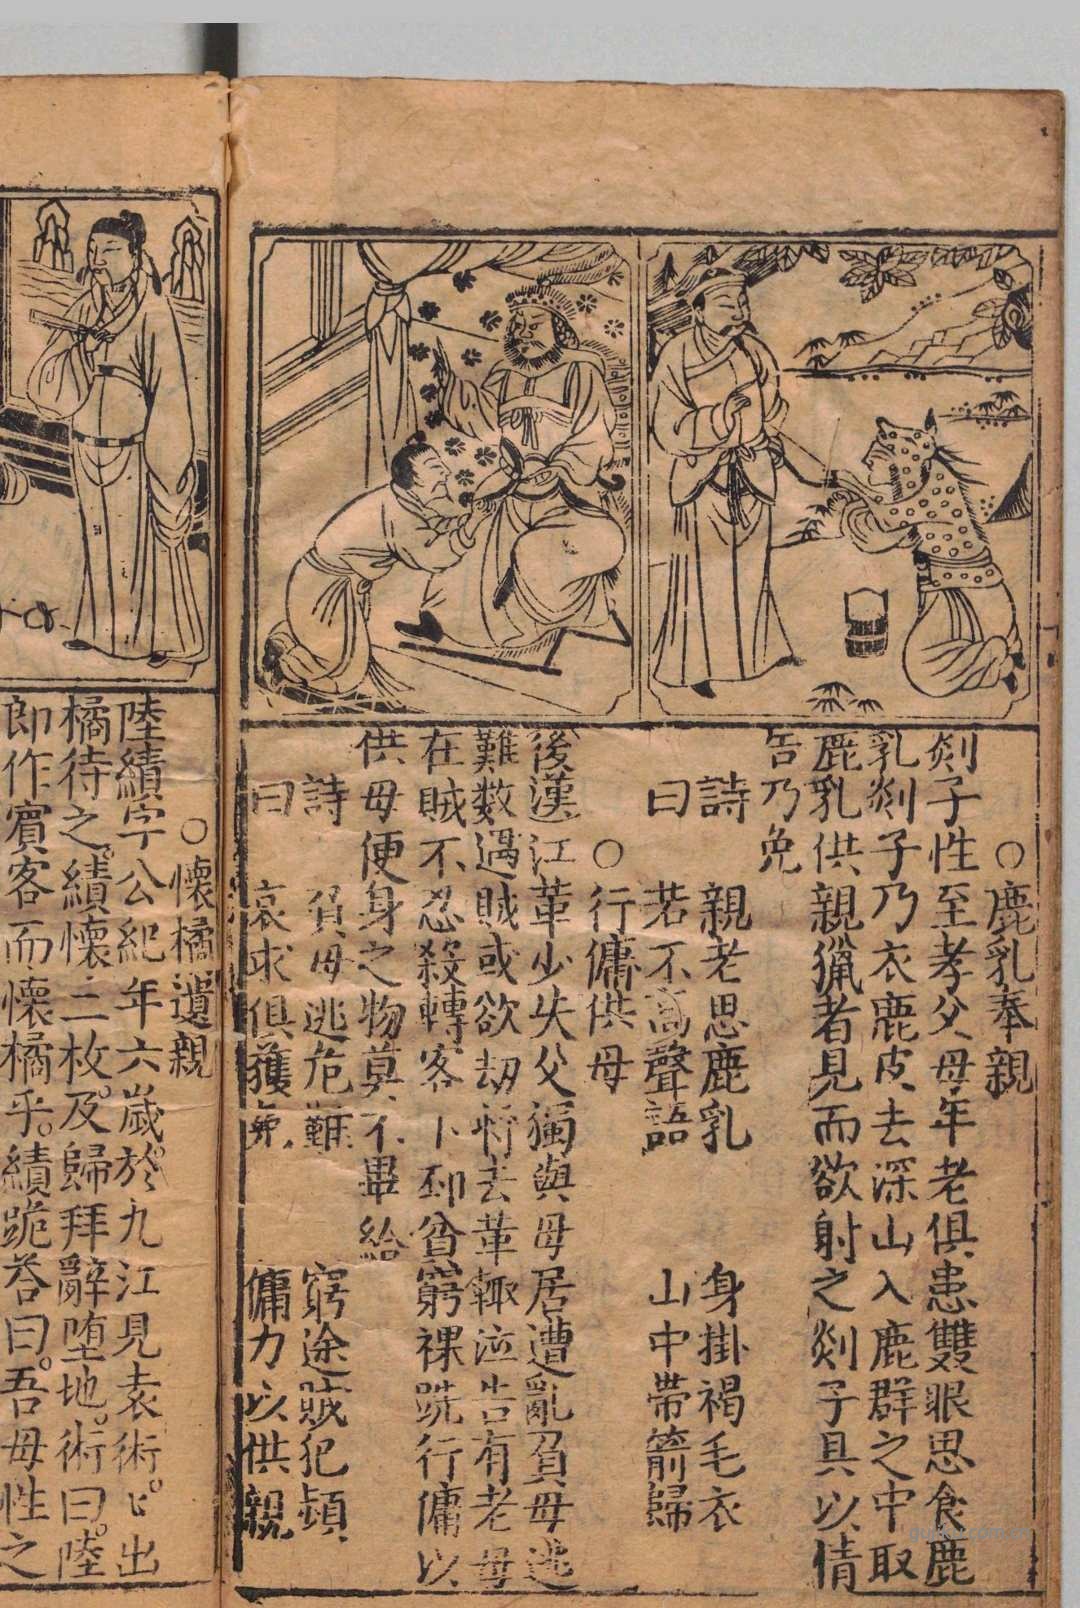 ○鹿乳奉親
剡子性至孝父母年老俱患雙眼思食鹿
乳剡子乃衣鹿皮去深山入鹿群之中取
鹿乳供親獵者見而欲射之剡子具以情
告乃免
詩 親老思鹿乳 身掛褐毛衣
曰 若不高聲語 山中帶箭歸
○行傭供母
後漢江革少失父獨與母居遭亂負母逃
難数遇賊或欲劫將去革輒泣告有老母
在賊不忍殺轉客下邳貧窮裸跣行傭以
供母便身之物莫不畢給
詩 負母逃危難 窮途賊犯頻
曰 哀求俱獲免 傭力以供親
○懷橘遺親
陸績字公紀年六歲。於九江見袁術。〻出
橘待之。績懷三枚。及歸拜辭堕地。術曰。陸
郎作賓客而懷橘乎。績跪答曰。吾母性之